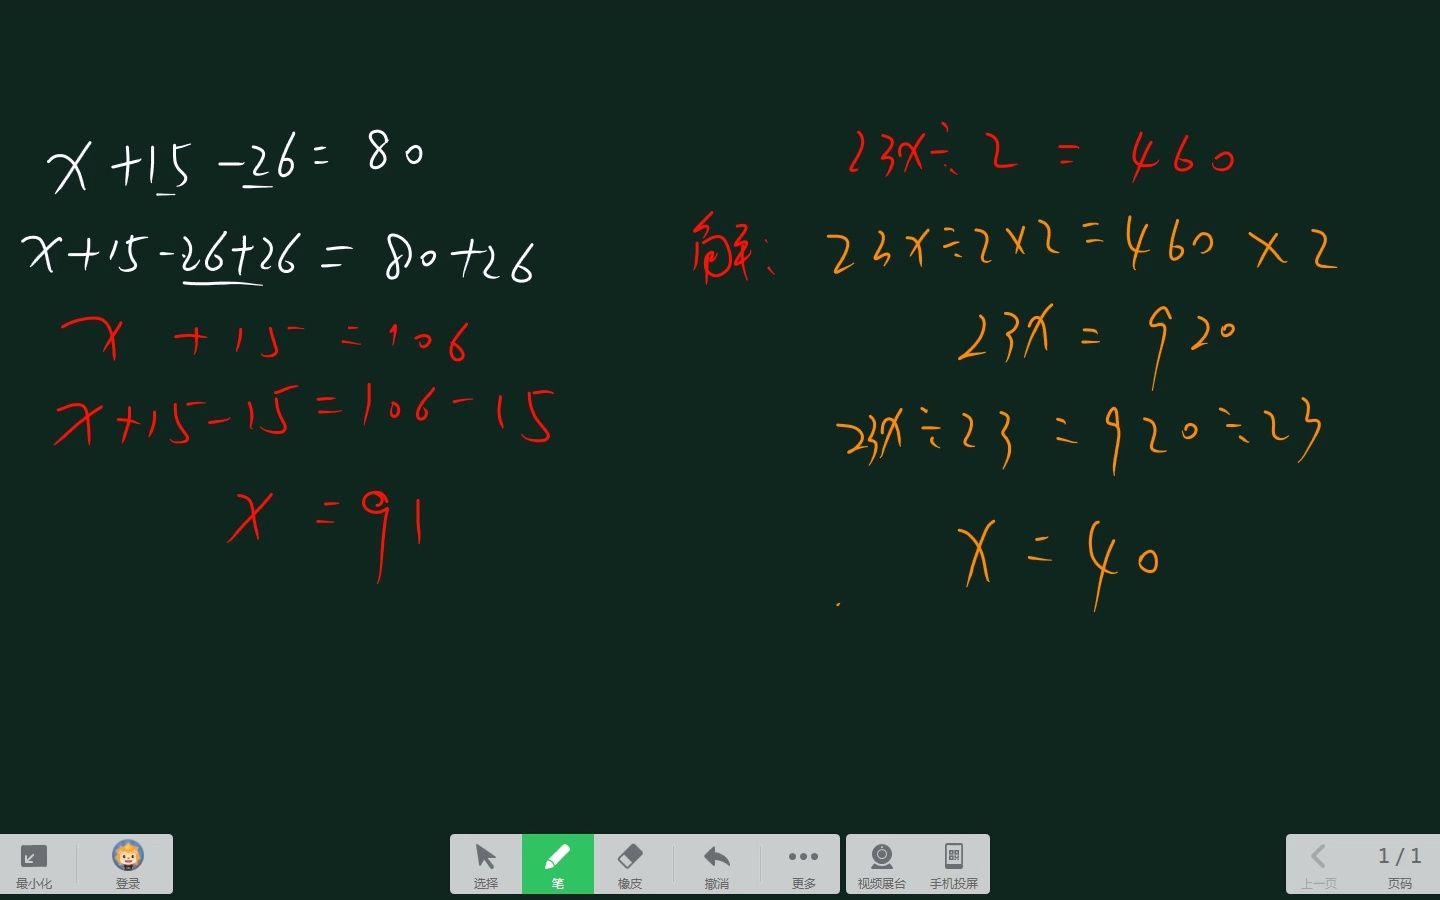 x+15-26=80
x+15-26+26=80+26
x+15=106
x+15-15=106-15
x=91
23x÷2=460
解: 23x÷2×2=460×2
23x=920
23x÷23=920÷23
x=40
最小化 登录 选择 笔 橡皮 撤消 更多 视频展台 手机投屏 上一页 1/1 页码